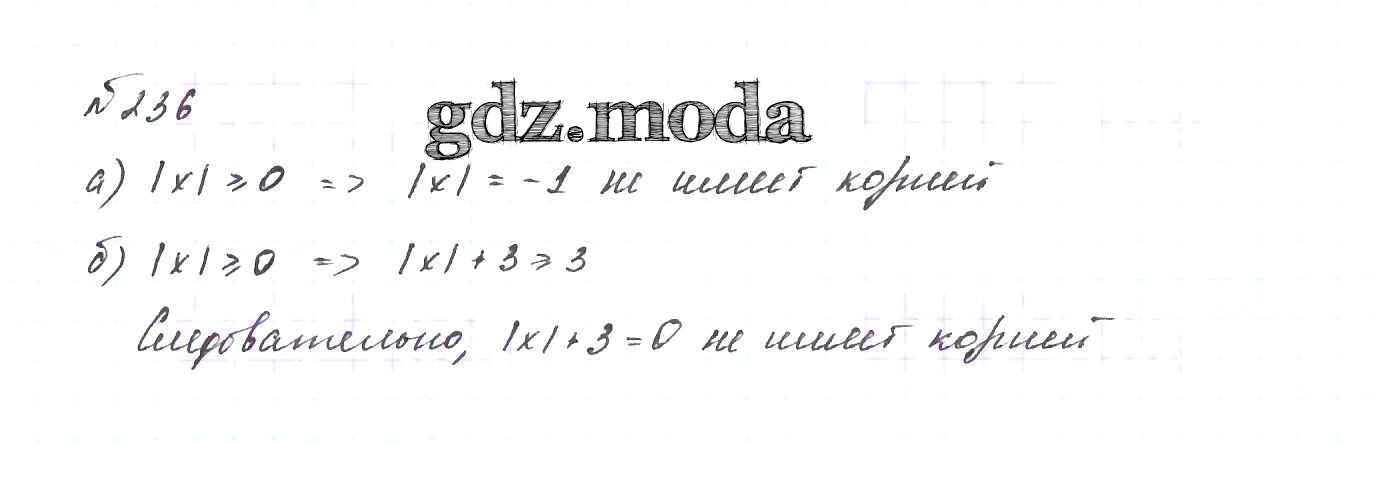 №236
gdz.moda
а) |x| ≥ 0 => |x| = -1 не имеет корней
б) |x| ≥ 0 => |x| + 3 ≥ 3
Следовательно, |x| + 3 = 0 не имеет корней